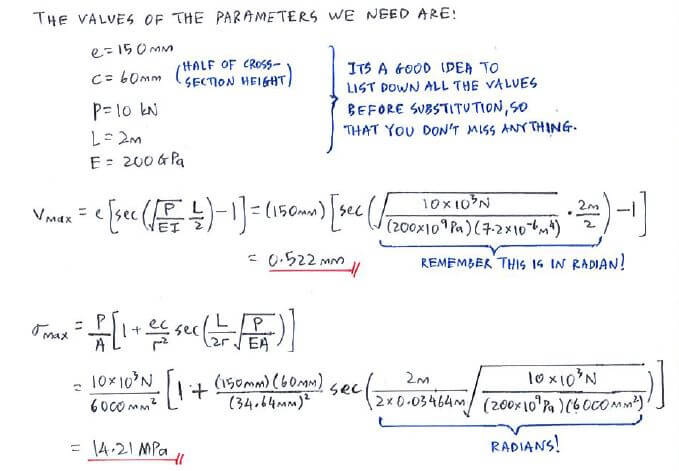 THE VALUES OF THE PARAMETERS WE NEED ARE:
e = 150mm
c = 60mm (HALF OF CROSS-SECTION HEIGHT)
P = 10 kN
L = 2m
E = 200 GPa
ITS A GOOD IDEA TO
LIST DOWN ALL THE VALUES
BEFORE SUBSTITUTION, SO
THAT YOU DON'T MISS ANYTHING.
Vmax = e[sec(√(P/EI) L/2) - 1] = (150mm)[sec(√(10×10³N / (200×10⁹Pa)(7.2×10⁻⁶m⁴)) · 2m/2) - 1]
= 0.522 mm
REMEMBER THIS IS IN RADIAN!
σmax = P/A[1 + ec/r² sec(L/2r √(P/EA))]
= 10×10³N / 6000mm² [1 + (150mm)(60mm) / (34.64mm)² sec(2m / 2×0.03464m √(10×10³N / (200×10⁹Pa)(6000mm²)))]
= 14.21 MPa
RADIANS!